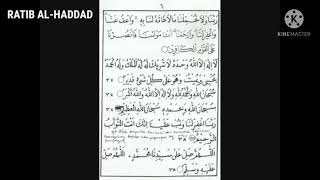 RATIB AL-HADDAD
KINEMASTER
٦
رَبَّنَا وَلَا تُحَمِّلْنَا مَا لَا طَاقَةَ لَنَا بِهِ وَاعْفُ عَنَّا
وَاغْفِرْ لَنَا وَارْحَمْنَا أَنْتَ مَوْلَانَا فَانْصُرْنَا
عَلَى الْقَوْمِ الْكَافِرِينَ
لَا إِلَهَ إِلَّا اللهُ وَحْدَهُ لَا شَرِيكَ لَهُ لَهُ الْمُلْكُ وَلَهُ الْحَمْدُ
يُحْيِي وَيُمِيتُ وَهُوَ عَلَى كُلِّ شَيْءٍ قَدِيرٌ ٣×
سُبْحَانَ اللهِ وَالْحَمْدُ لِلهِ وَلَا إِلَهَ إِلَّا اللهُ وَاللهُ أَكْبَرُ ٣×
سُبْحَانَ اللهِ وَبِحَمْدِهِ سُبْحَانَ اللهِ الْعَظِيمِ ٣×
رَبَّنَا اغْفِرْ لَنَا وَتُبْ عَلَيْنَا إِنَّكَ أَنْتَ التَّوَّابُ
الرَّحِيمُ ٣×
اللَّهُمَّ صَلِّ عَلَى سَيِّدِنَا مُحَمَّدٍ اللَّهُمَّ صَلِّ
عَلَيْهِ وَسَلِّمْ ٣×